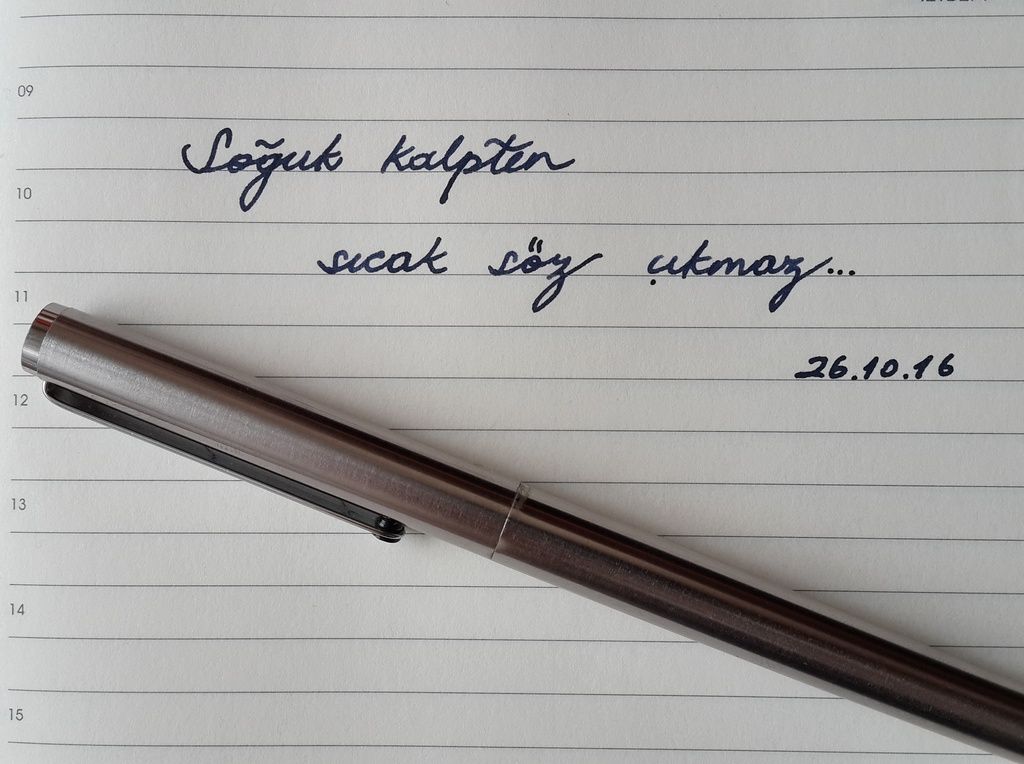 09
Soğuk kalpten
10
sıcak söz çıkmaz...
11
26.10.16
12
13
14
15